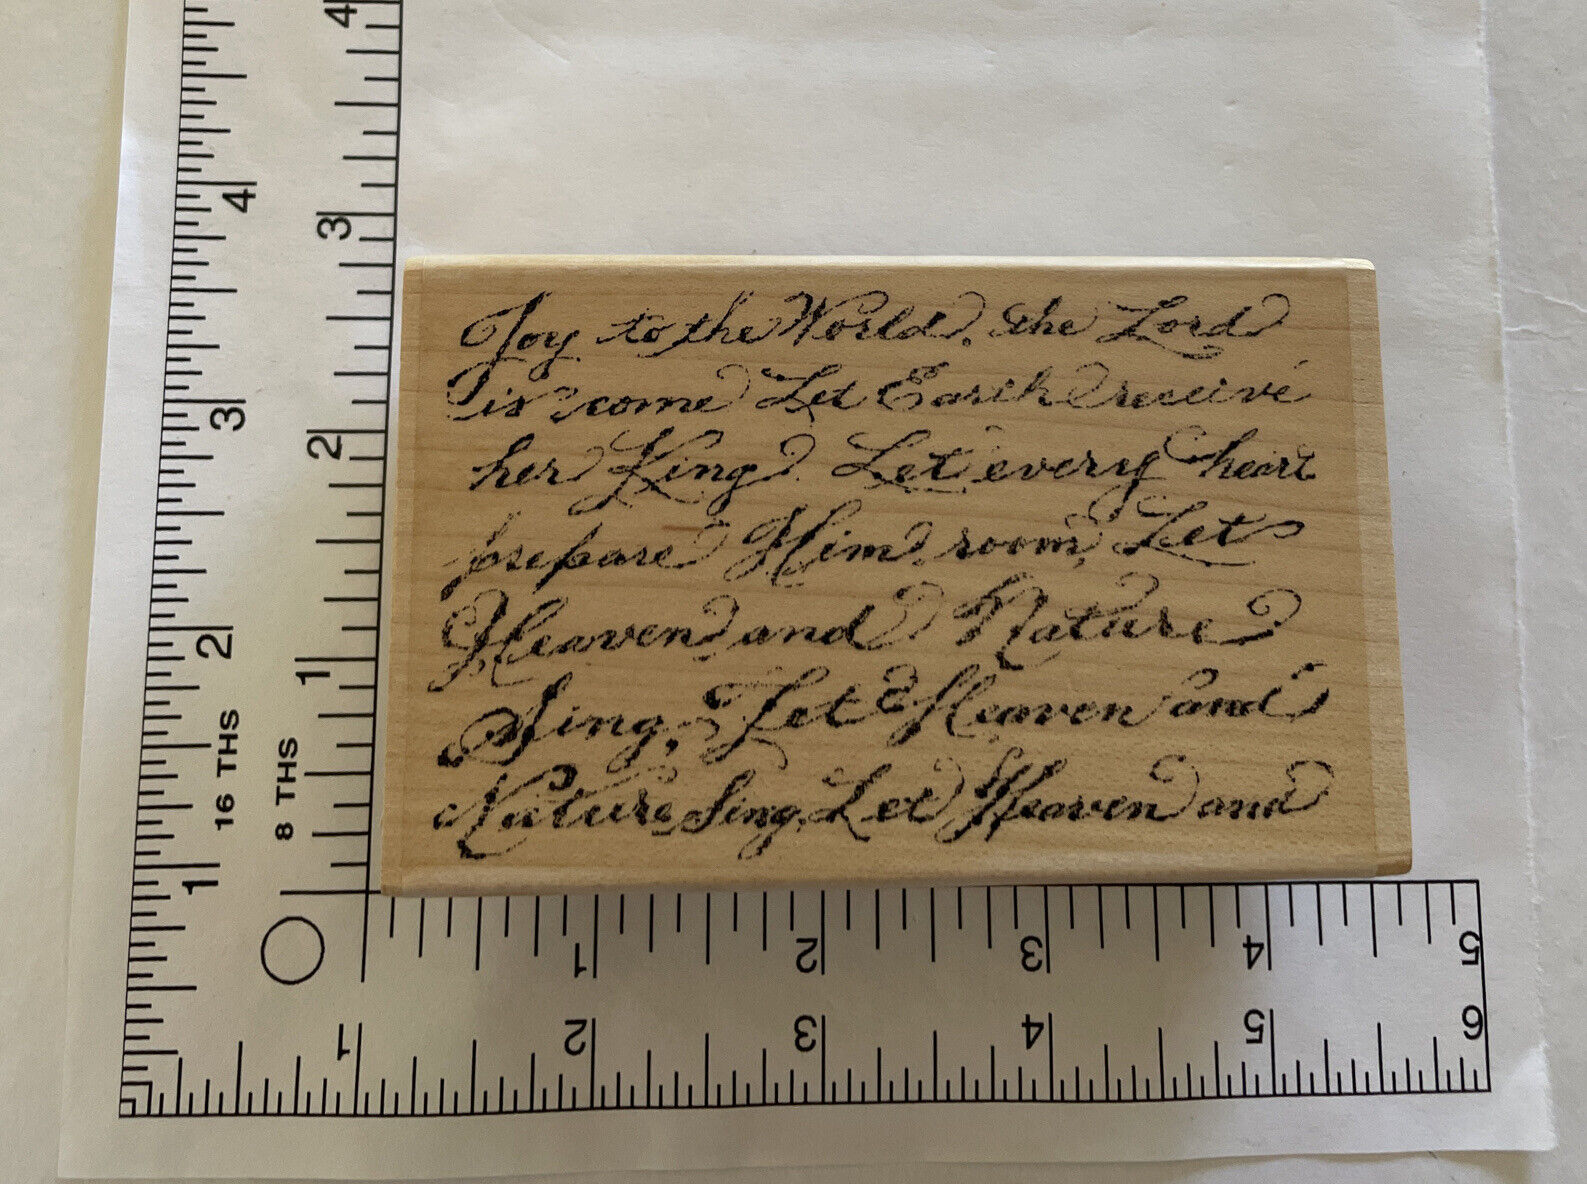 Joy to the World, the Lord
is come Let Earth receive
her King. Let every heart
prepare Him room, Let
Heaven and Nature
Sing, Let Heaven and
Nature Sing, Let Heaven and
4
3
2
1
16 THS
4
3
2
1
8 THS
1 2 3 4 5
1 2 3 4 5 6